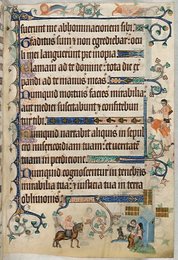 fuerunt me abhominacionem sibi
Traditus sum et non egrediebar: oculi
mei languerunt pre inopia
Clamaui ad te domine: tota die ex
pandi ad te manus meas
Numquid mortuis facies mirabilia:
aut medici suscitabunt et confitebun
tur tibi
Numquid narrabit aliquis in sepul
misericordiam tuam: et ueritatem
tuam in perdicione
Numquid cognoscentur in tenebris
mirabilia tua: et iusticia tua in terra
obliuionis